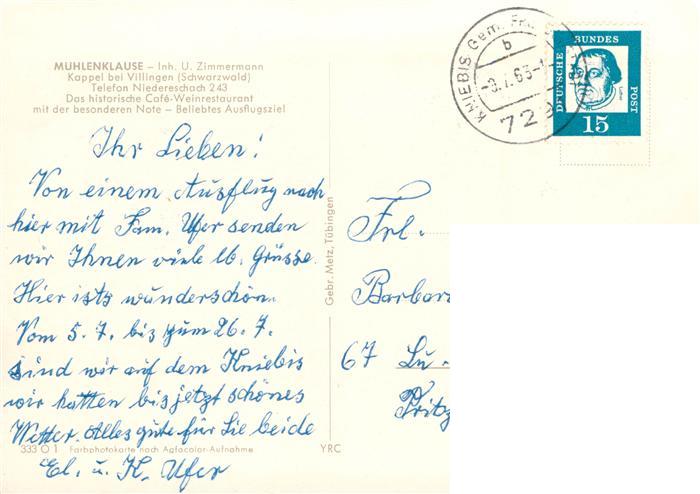 MÜHLENKLAUSE – Inh. U. Zimmermann
Kappel bei Villingen (Schwarzwald)
Telefon Niedereschach 243
Das historische Café-Weinrestaurant
mit der besonderen Note – Beliebtes Ausflugsziel
KNIEBIS Gem.
b
-9.7.63-
729
DEUTSCHE BUNDES POST
15
Ihr Lieben!
Von einem Ausflug nach
hier mit Fam. Ufer senden
wir Ihnen viele lb. Grüsse.
Hier ists wunderschön.
Vom 5.7. bis zum 26.7.
sind wir auf dem Kniebis
wir hatten bis jetzt schönes
Wetter. Alles gute für Sie beide
El. u. K. Ufer
333 O 1 Farbphotokarte nach Agfacolor-Aufnahme
YRC
Gebr. Metz, Tübingen
Frl.
Barbar
67 Lu.
Pritz